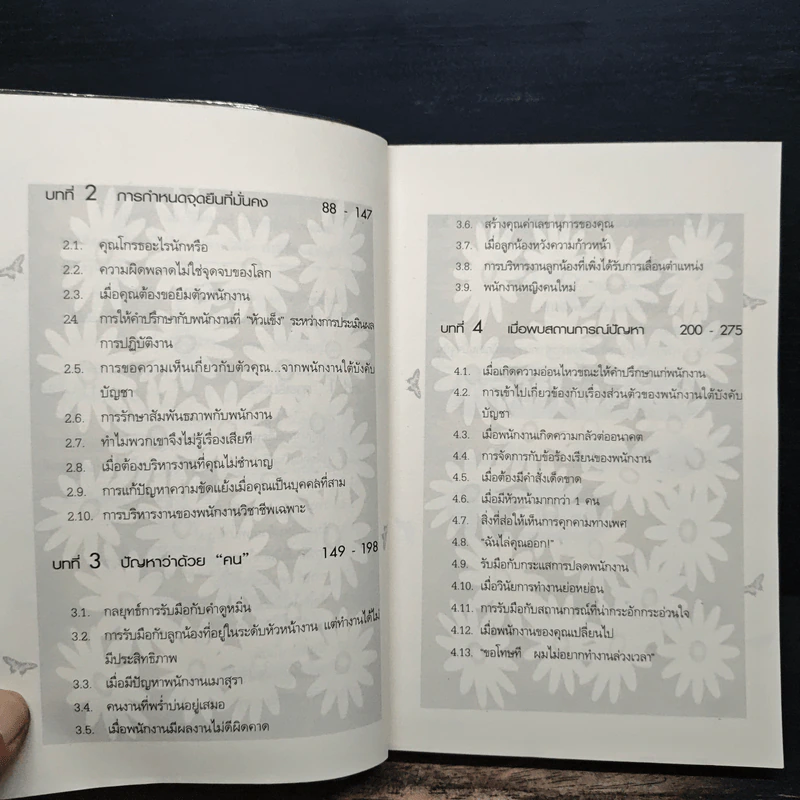 บทที่ 2 การกำหนดจุดยืนที่มั่นคง 88 - 147
2.1. คุณโกรธอะไรนักหรือ
2.2. ความผิดพลาดไม่ใช่จุดจบของโลก
2.3. เมื่อคุณต้องขอยืมตัวพนักงาน
2.4 การให้คำปรึกษากับพนักงานที่ "หัวแข็ง" ระหว่างการประเมินผล
การปฏิบัติงาน
2.5. การขอความเห็นเกี่ยวกับตัวคุณ...จากพนักงานใต้บังคับ
บัญชา
2.6 การรักษาสัมพันธภาพกับพนักงาน
2.7. ทำไมพวกเขาจึงไม่รู้เรื่องเสียที
2.8. เมื่อต้องบริหารงานที่คุณไม่ชำนาญ
2.9. การแก้ปัญหาความขัดแย้งเมื่อคุณเป็นบุคคลที่สาม
2.10. การบริหารงานของพนักงานวิชาชีพเฉพาะ
บทที่ 3 ปัญหาว่าด้วย "คน" 149 - 198
3.1. กลยุทธ์การรับมือกับคำดูหมิ่น
3.2 การรับมือกับลูกน้องที่อยู่ในระดับหัวหน้างาน แต่ทำงานได้ไม่
มีประสิทธิภาพ
3.3. เมื่อมีปัญหาพนักงานเมาสุรา
3.4. คนงานที่พร่ำบ่นอยู่เสมอ
3.5. เมื่อพนักงานมีผลงานไม่ดีผิดคาด
3.6. สร้างคุณค่าเลขานุการของคุณ
3.7. เมื่อลูกน้องหวังความก้าวหน้า
3.8. การบริหารงานลูกน้องที่เพิ่งได้รับการเลื่อนตำแหน่ง
3.9. พนักงานหญิงคนใหม่
บทที่ 4 เมื่อพบสถานการณ์ปัญหา 200 - 275
4.1. เมื่อเกิดความอ่อนไหวขณะให้คำปรึกษาแก่พนักงาน
4.2. การเข้าไปเกี่ยวข้องกับเรื่องส่วนตัวของพนักงานใต้บังคับ
บัญชา
4.3. เมื่อพนักงานเกิดความกลัวต่ออนาคต
4.4. การจัดการกับข้อร้องเรียนของพนักงาน
4.5. เมื่อต้องมีคำสั่งเด็ดขาด
4.6. เมื่อมีหัวหน้ามากกว่า 1 คน
4.7. สิ่งที่ส่อให้เห็นการคุกคามทางเพศ
4.8. "ฉันไล่คุณออก!"
4.9. รับมือกับกระแสการปลดพนักงาน
4.10. เมื่อวินัยการทำงานย่อหย่อน
4.11. การรับมือกับสถานการณ์ที่น่ากระอักกระอ่วนใจ
4.12. เมื่อพนักงานของคุณเปลี่ยนไป
4.13. "ขอโทษที ผมไม่อยากทำงานล่วงเวลา"